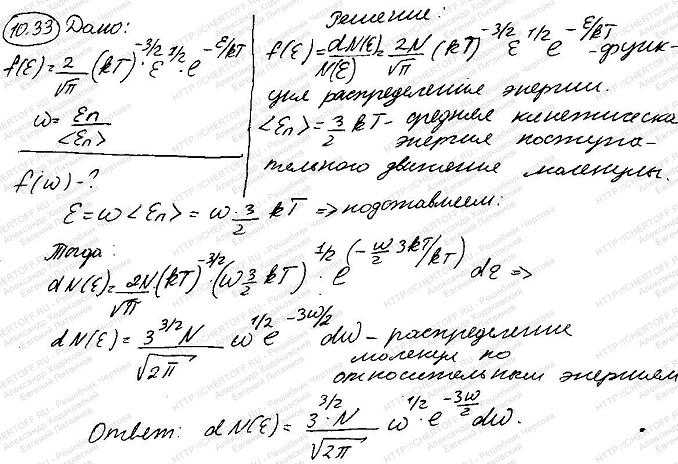 10.33 Дано:
f(ε)=2/√π (kT)^-3/2 · ε^1/2 · e^-ε/kT
ω= εп/<εп>
f(ω)-?
Решение:
f(ε)=dN(ε)/N(ε)=2N/√π (kT)^-3/2 ε^1/2 e^-ε/kT - функ-
ция распределения энергии.
<εп>=3/2 kT - средняя кинетическа
энергия поступа-
тельного движения молекулы.
ε=ω<εп>=ω·3/2 kT =>подставляем:
Тогда:
dN(ε)=2N/√π (kT)^-3/2 · (ω3/2 kT)^1/2 · e^(-ω/2 3kT/kT) dε =>
dN(ε)=3^3/2 N/√2π ω^1/2 e^-3ω/2 dω - распределение
молекул по
относительным энергиям
Ответ: dN(ε)=3^3/2 · N/√2π ω^1/2 · e^-3ω/2 dω.
HTTP://CHERTOFF.RU - Решебник Чертова
Евгений Хохлов